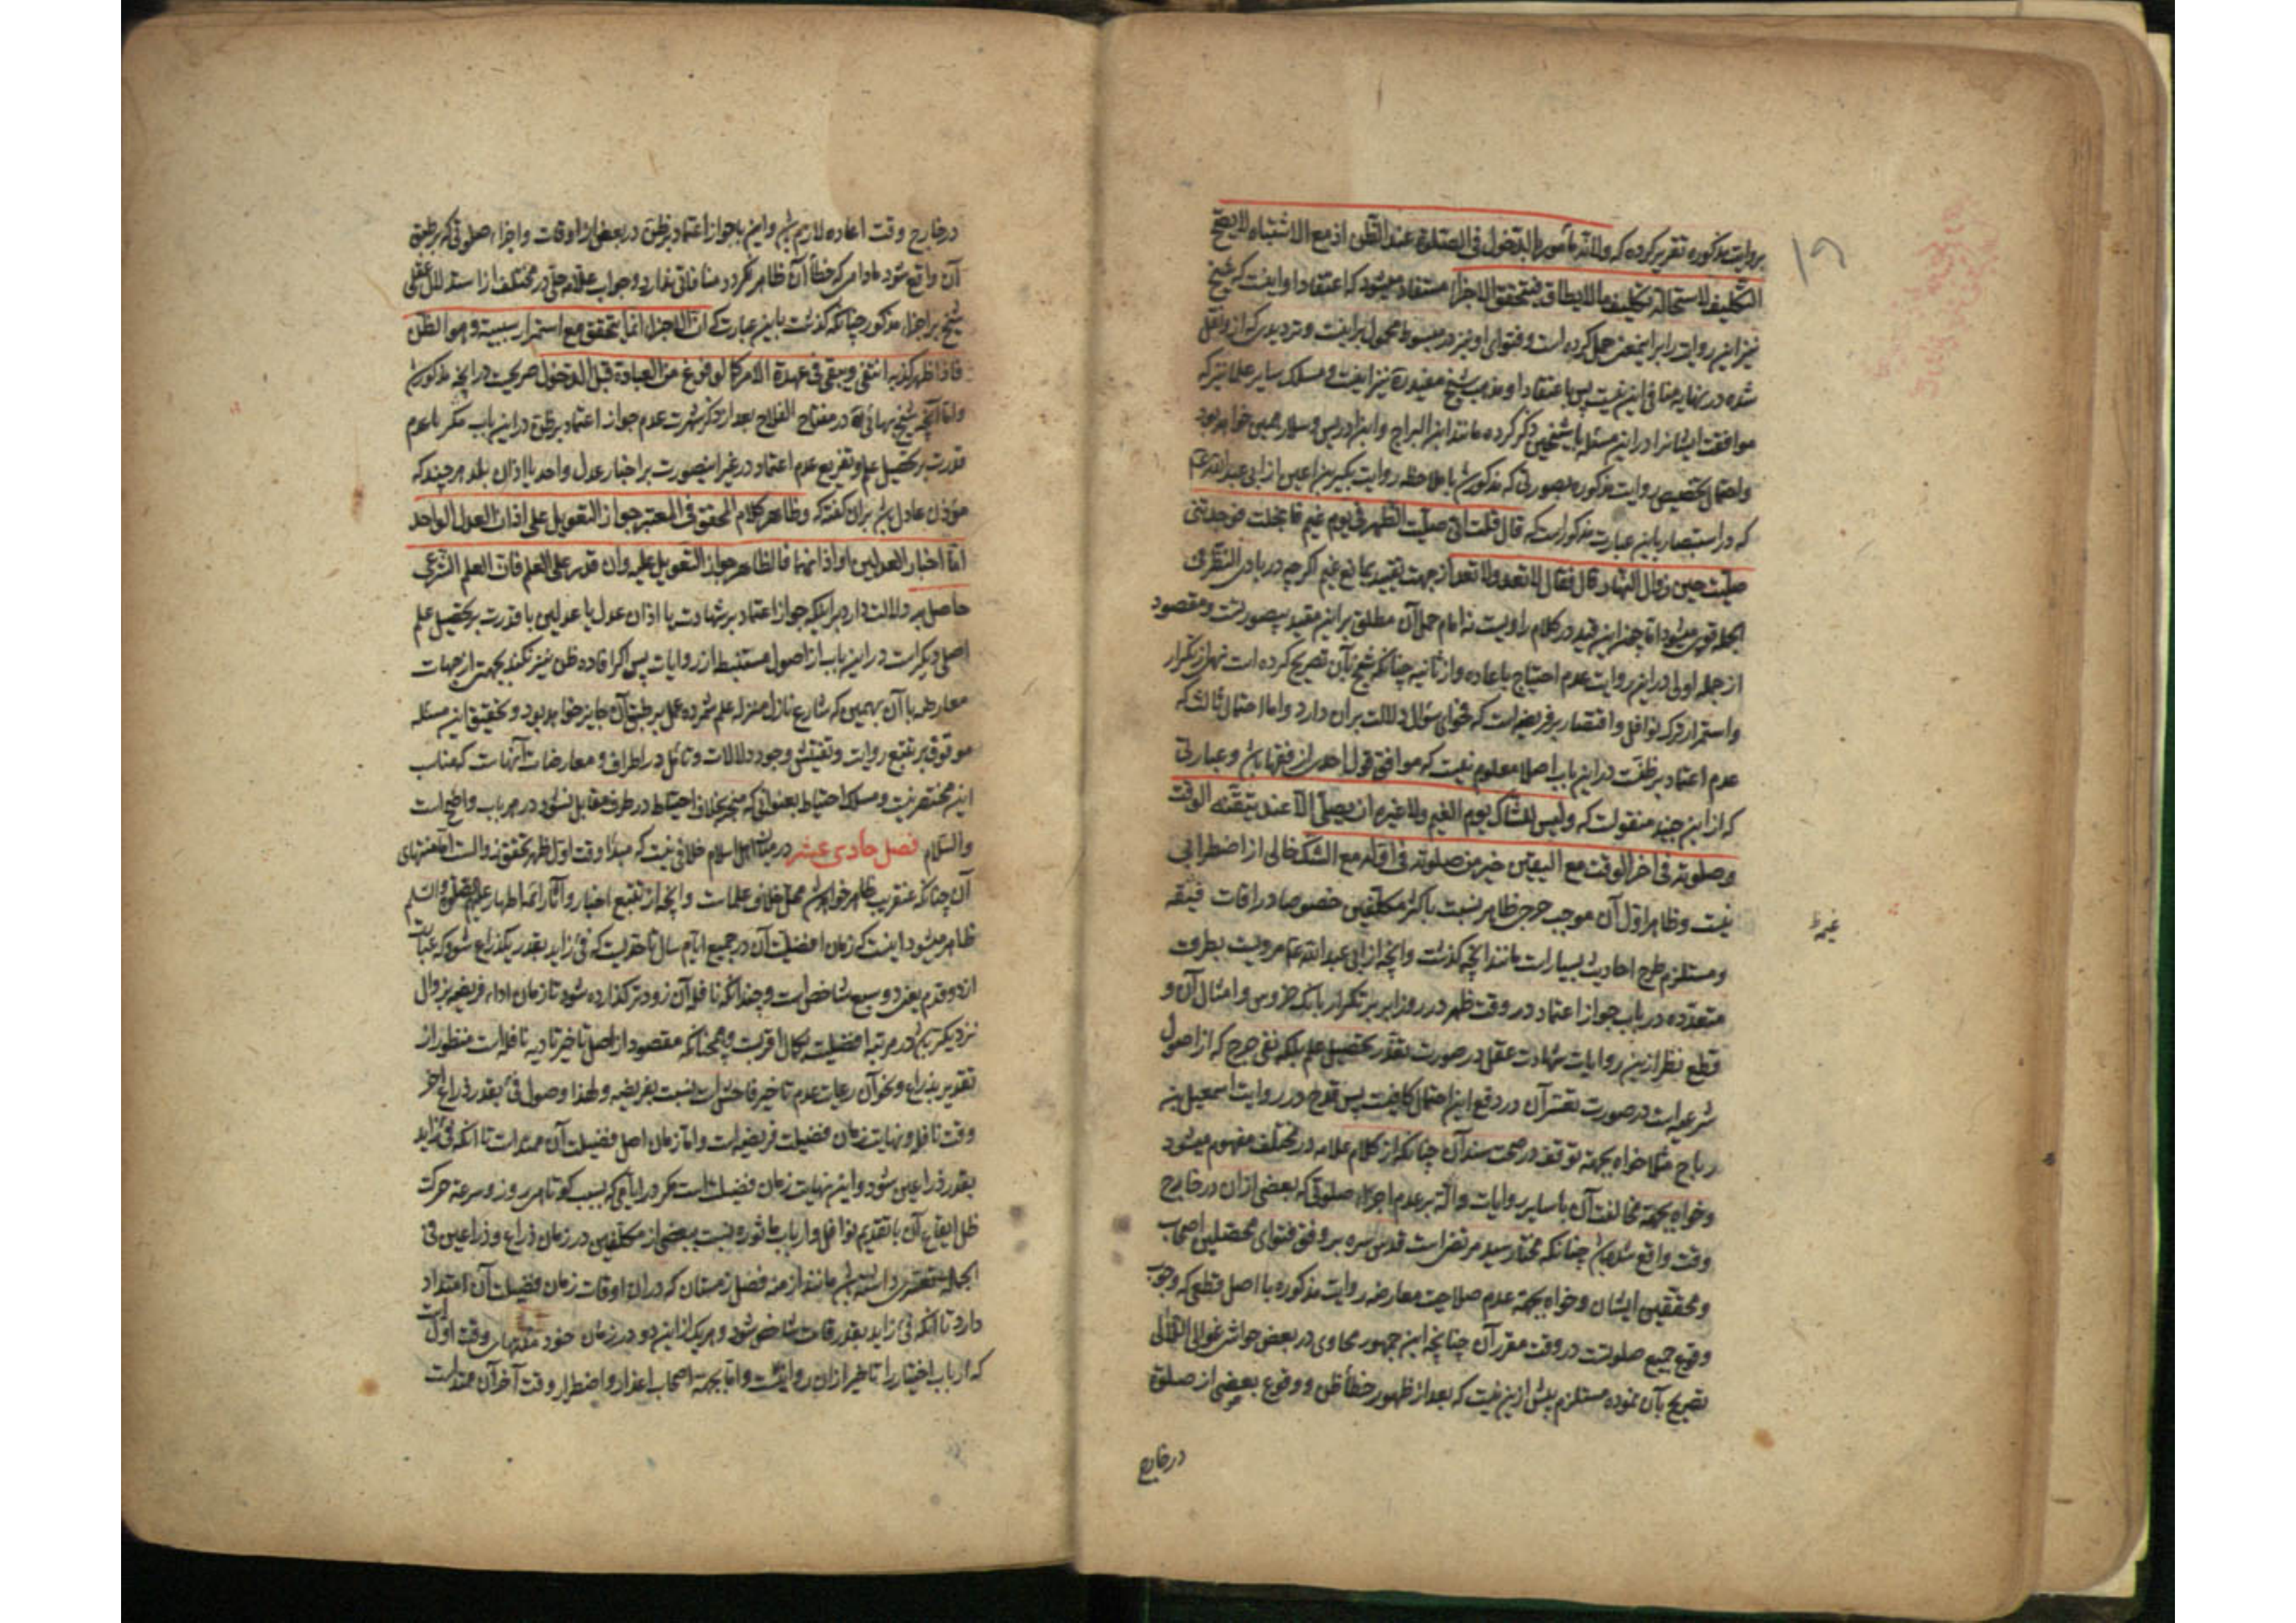 بروایت مذکوره تقریر کرده که ولانه مأمور بالدخول فی الصلوة عند الظن اذ مع الاشتباه لا یصح
التکلیف لاستحالة تکلیف ما لا یطاق فیتحقق الاجزاء مستفاد میشود که اعتقاد او اینست که شیخ
نیز این روایت را بر اینمعنی حمل کرده است و فتوای او نیز در مبسوط محمول بر اینست و تردیدی که از او نقل
شده در نهایه منافی این نیست پس باعتقاد او مذهب شیخ مفید ره نیز اینست و مسلک سایر علما نیز که
موافقت ایشانرا در این مسئله با شیخین ذکر کرده مانند ابن البراج و ابن ادریس و سلار همین خواهد بود
و احتمال تخصیص روایت مذکوره بصورتی که مذکور شد با ملاحظه روایت بکیر بن اعین از ابی عبد الله ع
که در استبصار باین عبارت مذکور است که قال قلت انی صلیت الظهر فی یوم غیم فانجلت فوجدتنی
صلیت حین زوال النهار قال فقال لا تعد ولا تعد از جهت تقیید بمانع غیم اگر چه در بادی النظر فی
الجمله قوی میشود اما چون این قید در کلام راویست نه امام حمل آن مطلق بر این مقید بیصورتست و مقصود
از جمله اولی در این روایت عدم احتیاج باعاده و از ثانیه چنانکه شیخ بآن تصریح کرده است نهی از تکرار
و استمرار ترک نوافل و اقتصار بر فریضه است که فحوای سؤال دلالت بران دارد و اما احتمال ثالث که
عدم اعتماد بر ظنست در این باب اصلا معلوم نیست که موافق قول احدی از فقها باشد و عبارتی
که از ابن جنید منقولست که ولیس للشاک یوم الغیم ولا غیره ان یصلی الا عند تیقنه الوقت
وصلوته فی اخر الوقت مع الیقین خیر من صلوته فی اوله مع الشک خالی از اضطرابی
نیست و ظاهر اول آن موجب حرج ظاهر نسبت باکثر مکلفین خصوصا در اوقات
غیم ظ
و مستلزم طرح احادیث بسیار است مانند آنچه گذشت و آنچه از ابی عبد الله ع مرویست بطرق
متعدده در باب جواز اعتماد در وقت ظهر در روز ابر بر تکرار بانک خروس و امثال آن و
قطع نظر ازین روایات شهادت عقل در صورت تعذر تحصیل علم بلکه نفی حرج که از اصول
شرعیه است در صورت تعسر آن در دفع این احتمال کافیست پس قدح در روایت اسمعیل بن
رباح مثلا خواه بجهة توقف در صحت سند آن چنانکه از کلام علامه در مختلف مفهوم میشود
و خواه بجهة مخالفت آن با سایر روایات دالّه بر عدم اجزاء صلوتی که بعضی ازان در خارج
وقت واقع شده باشد چنانکه مختار سید مرتضی است قدس سره بر وفق فتوای محصلین اصحاب
و محققین ایشان و خواه بجهة عدم صلاحیت معارضه روایت مذکوره با اصل قطعی که وجوب
وقوع جمیع صلوتست در وقت مقرر آن چنانچه ابن جمهور لحاوی در بعض حواشی غوالی اللئالی
تصریح بآن نموده مستلزم بیش ازین نیست که بعد از ظهور خطأ ظن و وقوع بعضی از صلوة
در خارج
در خارج وقت اعاده لازم باشد و این با جواز اعتماد بر ظن در بعضی از اوقات و اجزاء صلوتی که بر طبق
آن واقع شود مادام که خطأ آن ظاهر نگردد منافاتی ندارد و جواب علامه حلی در مختلف از استدلال عقلی
شیخ بر اجزاء مذکور چنانکه گذشت باین عبارت که ان الاجزاء انما یتحقق مع استمرار سببیته وهو الظن
فاذا ظهر کذبه انتفی ویبقی فی عهدة الامر کما لو فرغ من العبادة قبل الدخول صریحست در آنچه مذکور شد
و اما آنچه شیخ بهائی ره در مفتاح الفلاح بعد از ذکر شهرت عدم جواز اعتماد بر ظن در این باب مگر با عدم
قدرت بر تحصیل علم و تفریع عدم اعتماد در غیر اینصورت بر اخبار عدل واحد یا اذان بلد هر چند که
مؤذن عادل باشد بران گفته که وظاهر کلام المحقق فی المعتبر جواز التعویل علی اذان العدل الواحد
اما اخبار العدلین او اذانهما فالظاهر جواز التعویل علیه وان قدر علی العلم فان العلم الشرعی
حاصل به دلالت دارد بر اینکه جواز اعتماد بر شهادت یا اذان عدل یا عدلین با قدرت بر تحصیل علم
اصلی دیگر است در این باب از اصول مستنبط از روایات پس اگر افاده ظن نیز نکند بجهتی از جهات
معارضه با آن بهمین که شارع نازل منزله علم شمرده عمل بر طبق آن جایز خواهد بود و تحقیق این مسئله
موقوف بر تتبع روایت و تفتیش وجود دلالات و تأمل در اطراف و معارضات آنهاست که مناسب
این مختصر نیست و مسلک احتیاط بعنوانی که منجر بخلاف احتیاط در طرف مقابل نشود در هر باب واضح است
والسلام فصل حادی عشر در میان اهل اسلام خلافی نیست که مبدأ وقت اول ظهر تحقق زوالست اما منتهای
آن چنانکه عنقریب ظاهر خواهد شد محل خلاف علماست و آنچه از تتبع اخبار و آثار ائمه اطهار علیهم الصلوة والسلم
ظاهر میشود اینست که زمان افضلیت آن در جمیع ایام سال تا حدیست که فئ زاید بقدر یکذراع شود که عبارتست
از دو قدم یعنی دو سبع شاخص است و چندانکه نافله آن زودتر گذارده شود تا زمان اداء فریضه بزوال
نزدیکتر باشد در مرتبه افضلیت بکمال اقربست و همچنانکه مقصود از اصل تاخیر تادیه نافله است منظور از
تقدیر بذراع و نحو آن رعایت عدم تاخیر فاحش است نسبت بفریضه و لهذا وصول فئ بقدر ذراع اخر
وقت نافله و نهایت زمان فضیلت فریضه است و اما زمان اصل فضیلت آن ممتد است تا آنکه فئ زاید
بقدر ذراعین شود و این نهایت زمان فضیلت است مگر در ایامی که بسبب کوتاهی روز و سرعة حرکت
ظل ایقاع آن با تقدیم نوافل و ارباب ماثوره نسبت ببعضی از مکلفین در زمان ذراع و ذراعین فی
الجمله تعسری داشته باشد مانند ازمنه فصل زمستان که در ان اوقات زمان فضیلت آن امتداد
دارد تا آنکه فئ زاید بقدر قامت شاخص شود و هر یک از این دو در زمان خود منتهای وقت اول است
که ارباب اختیار را تاخیر ازان روا نیست و اما بجهة اصحاب اعذار و اضطرار وقت آخر آن ممتد است